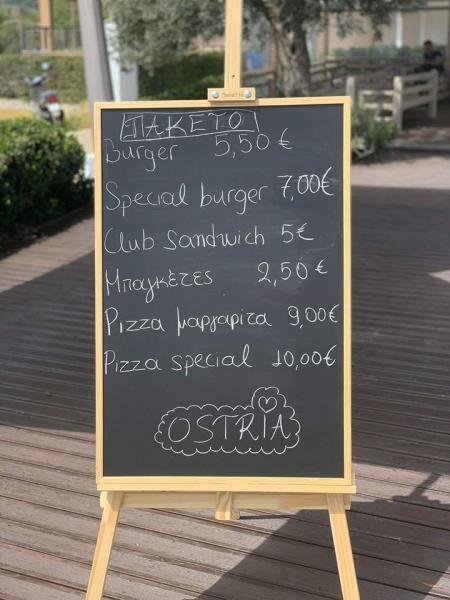 ΠΑΚΕΤΟ
Burger 5,50 €
Special burger 7,00€
Club Sandwich 5€
Μπαγκέτες 2,50 €
Pizza μαργαρίτα 9,00€
Pizza special 10,00€
OSTRIA